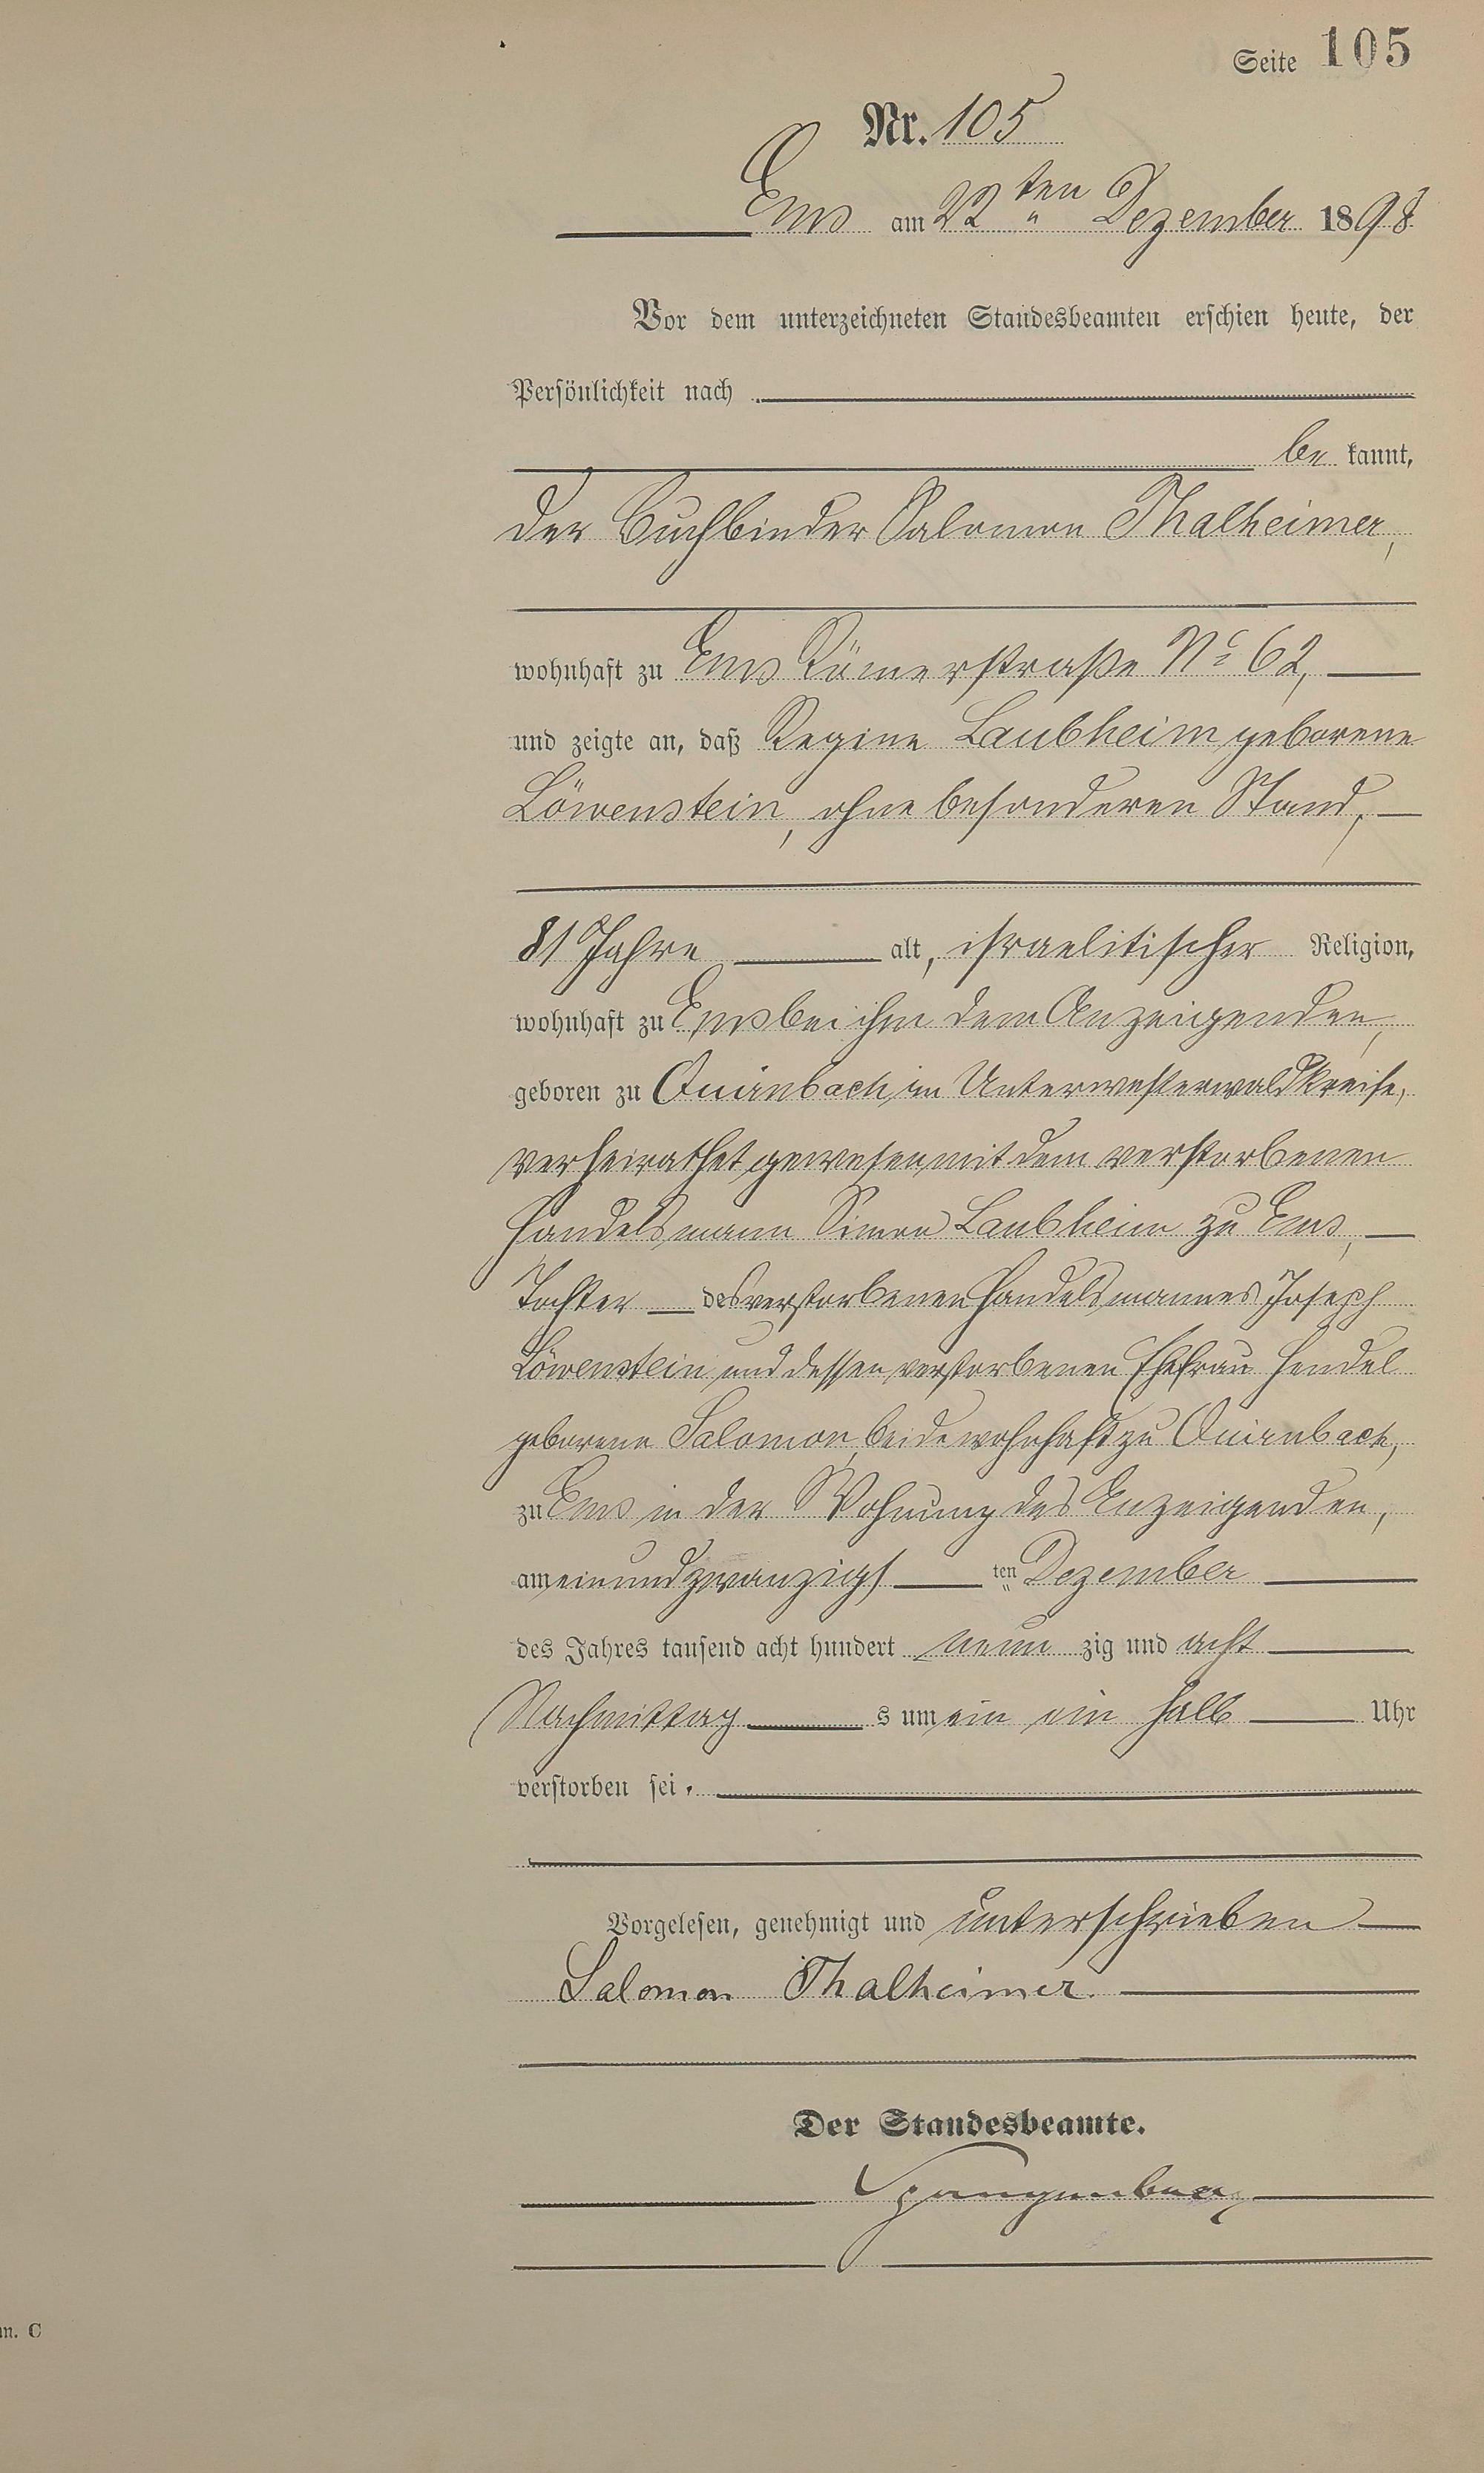 Seite 105
Nr. 105
Ems am 22ten Dezember 1898
Vor dem unterzeichneten Standesbeamten erschien heute, der
Persönlichkeit nach
be kannt,
der Buchbinder Salomon Thalheimer,
wohnhaft zu Ems Römerstraße No 62,
und zeigte an, daß Regine Laubheim geborene
Löwenstein, ohne besonderen Stand,
81 Jahre alt, israelitischer Religion,
wohnhaft zu Ems bei ihm dem Anzeigenden,
geboren zu Quirnbach im Unterwesterwaldkreise,
verheirathet gewesen mit dem verstorbenen
Handelsmann Simon Laubheim zu Ems,
Tochter des verstorbenen Handelsmannes Joseph
Löwenstein und dessen verstorbenen Ehefrau Hendel
geborene Salomon, beide wohnhaft zu Quirnbach,
zu Ems in der Wohnung des Anzeigenden,
am einundzwanzigsten Dezember
des Jahres tausend acht hundert neun zig und acht
Nachmittag s um ein ein halb Uhr
verstorben sei.
Vorgelesen, genehmigt und unterschrieben
Salomon Thalheimer.
Der Standesbeamte.
Spangenberg
m. C